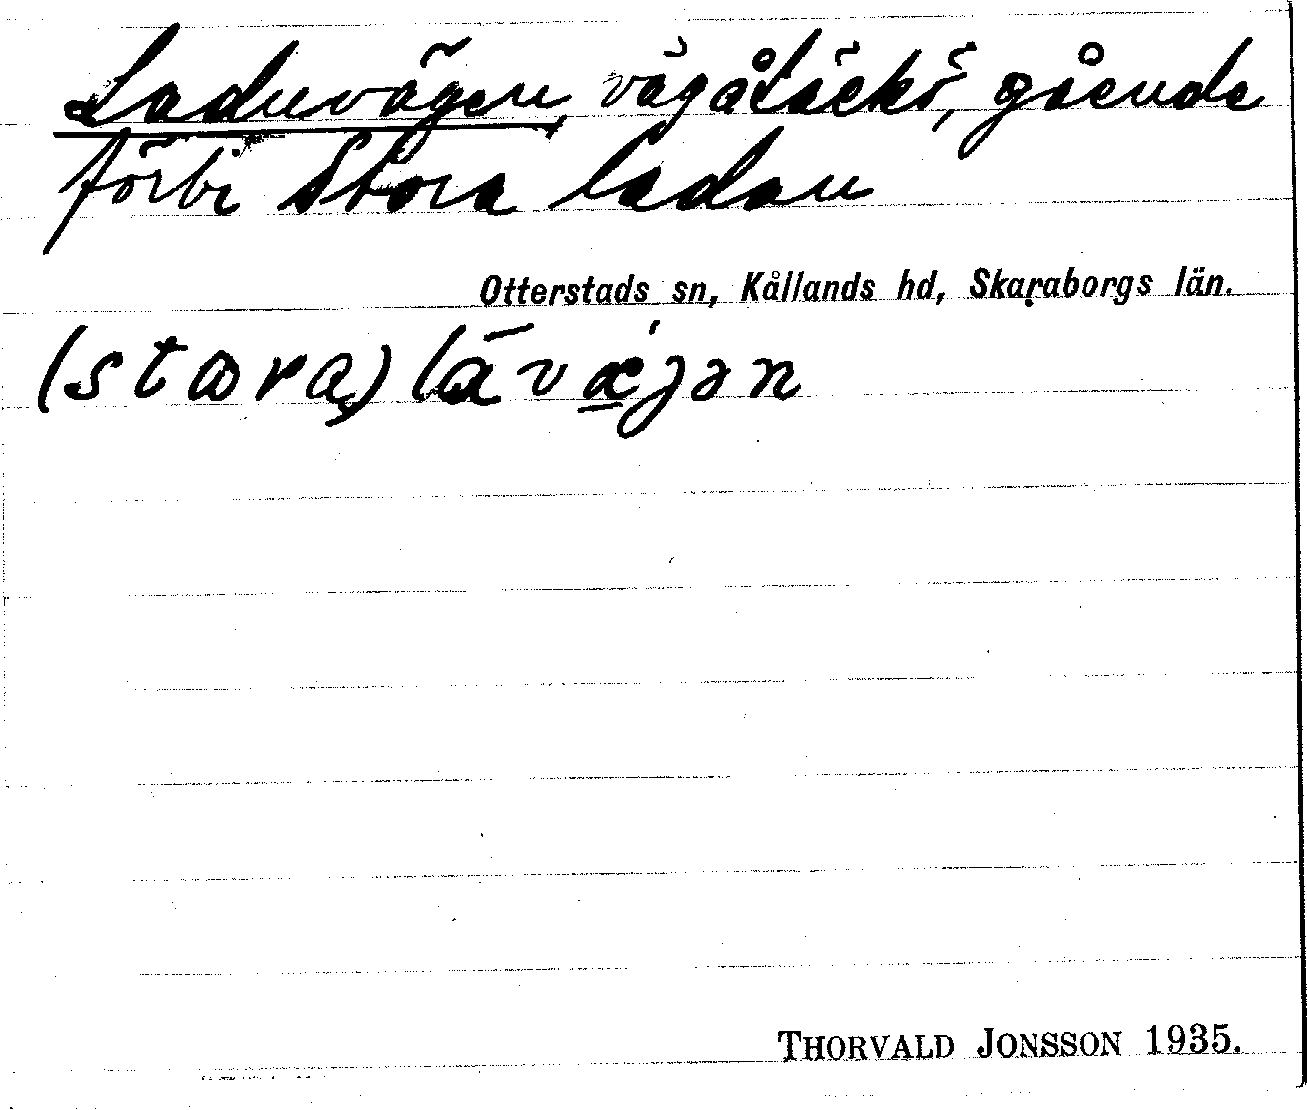 Laduvägen, väg å Läckö, gående
förbi Stora ladan
Otterstads sn, Kållands hd, Skaraborgs län.
(stɷra) lāvǽ̠jən
THORVALD JONSSON 1935.